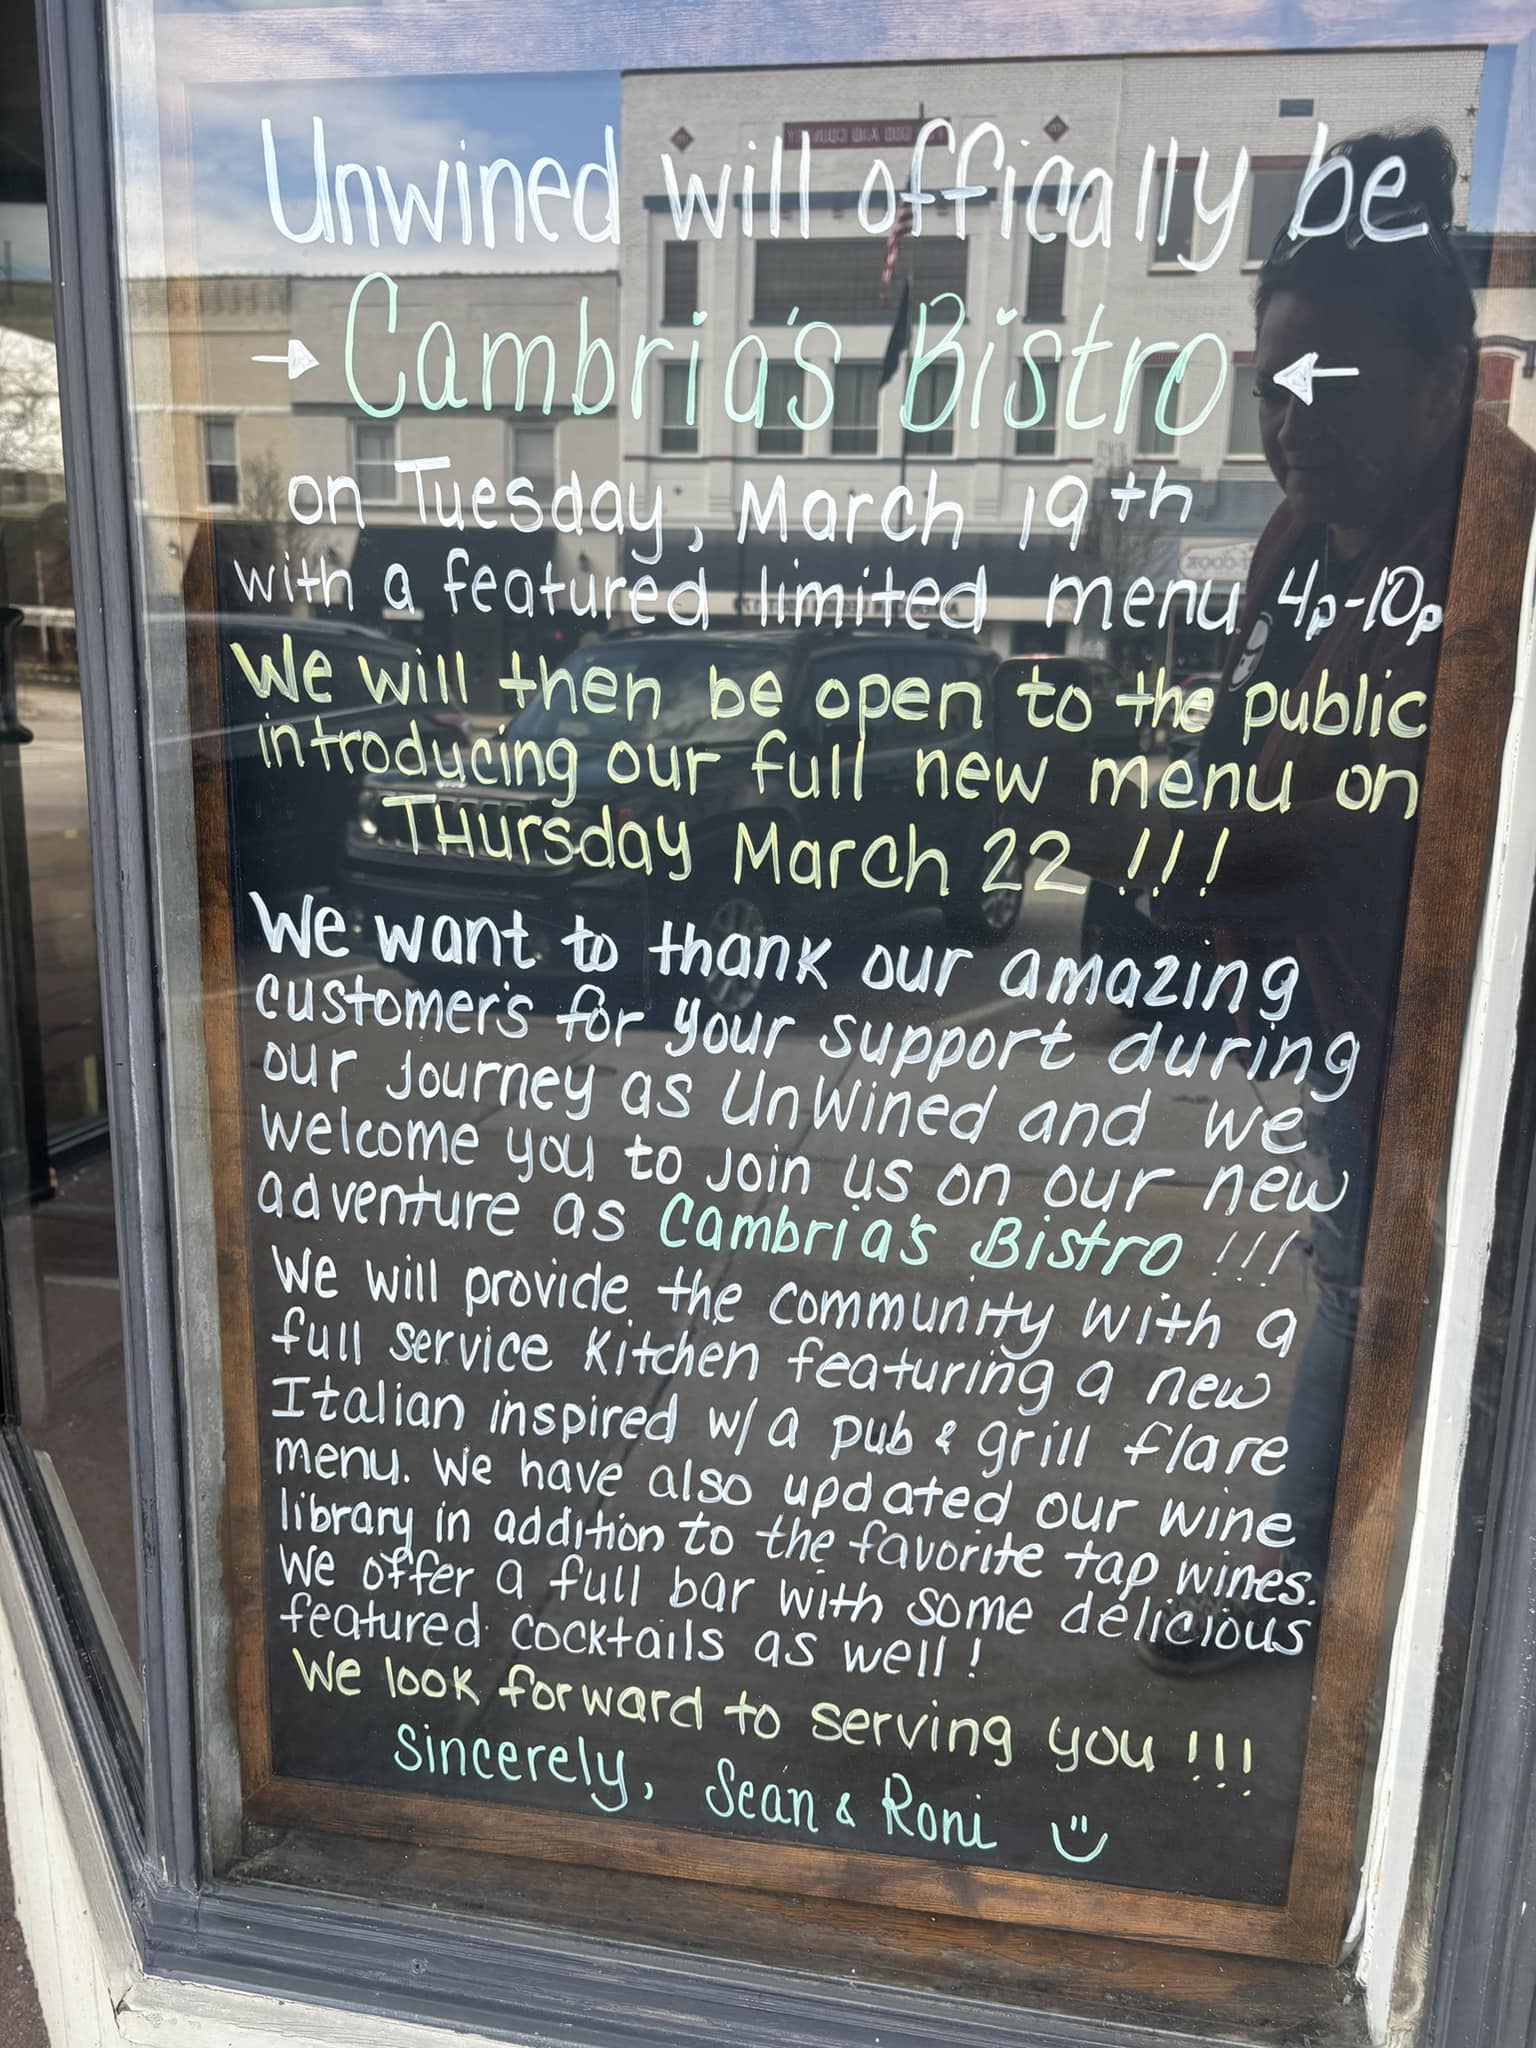 Unwined will offically be
→ Cambria's Bistro ←
on Tuesday, March 19th
with a featured limited menu 4p-10p
We will then be open to the public
introducing our full new menu on
THursday March 22 !!!
We want to thank our amazing
customer's for your support during
our journey as UnWined and we
welcome you to join us on our new
adventure as Cambria's Bistro !!!
We will provide the community with a
full service kitchen featuring a new
Italian inspired w/a pub & grill flare
menu. We have also updated our wine
library in addition to the favorite tap wines.
We offer a full bar with some delicious
featured cocktails as well!
We look forward to serving you !!!
Sincerely, Sean & Roni